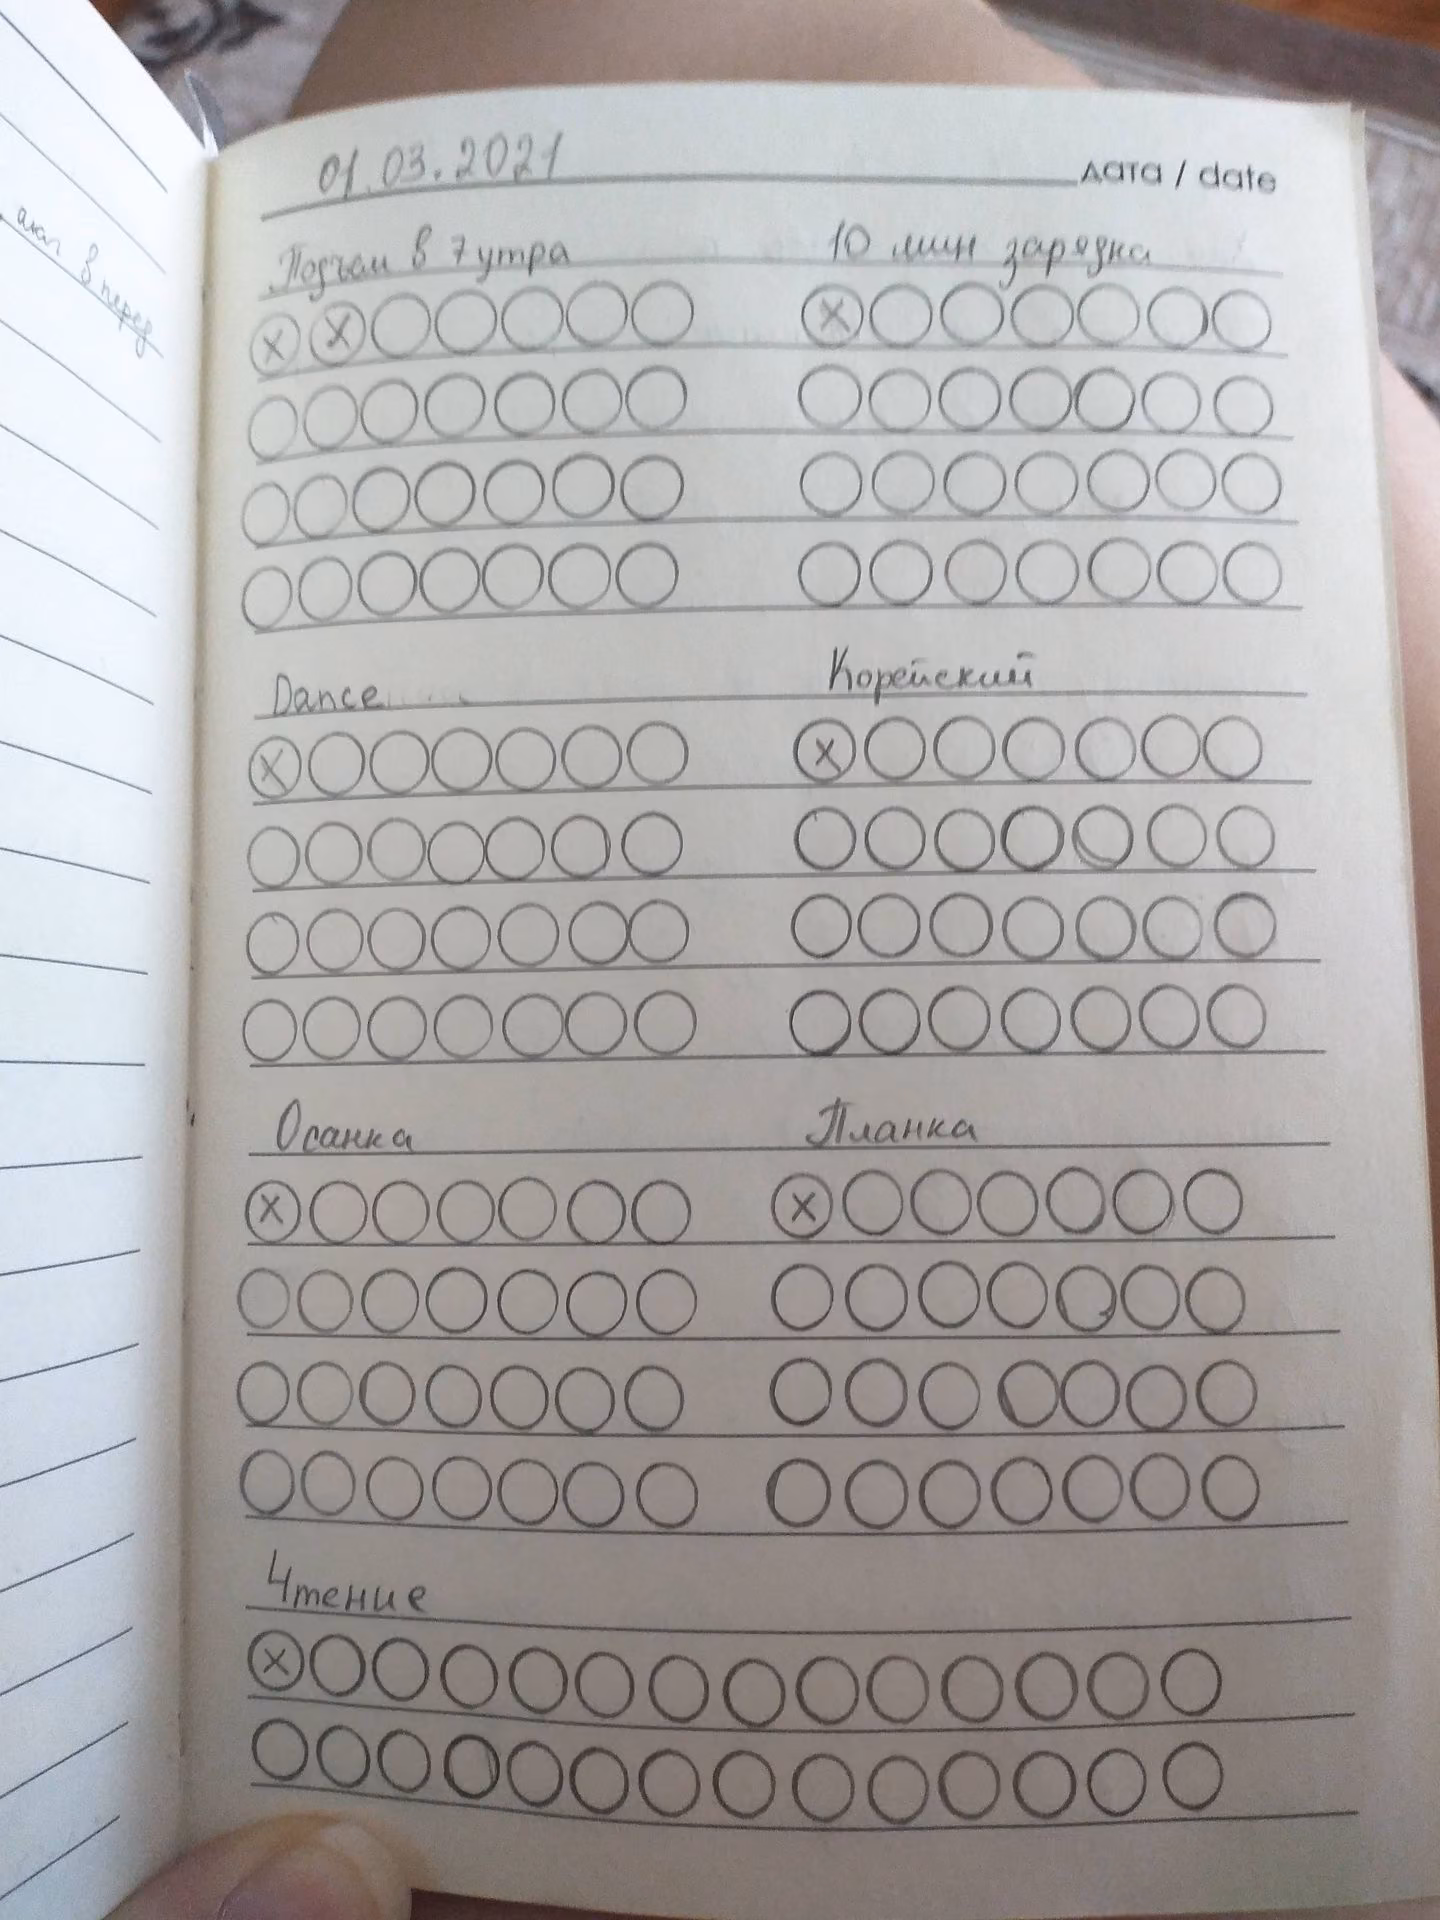 01.03.2021 дата / date
Подъём в 7 утра
10 мин зарядка
Dance
Корейский
Осанка
Планка
Чтение
в перед